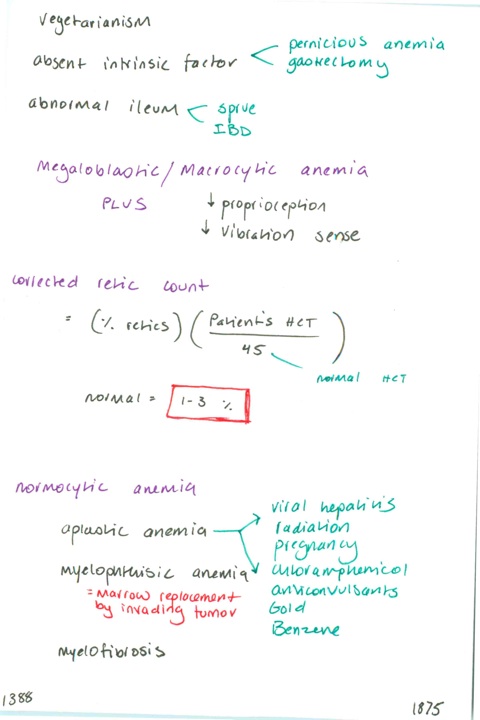 vegetarianism
absent intrinsic factor
pernicious anemia
gastrectomy
abnormal ileum
sprue
IBD
Megaloblastic / Macrocytic anemia
PLUS ↓ proprioception
↓ vibration sense
corrected retic count
= (% retics) (Patient's HCT / 45)
normal HCT
normal = 1-3 %
normocytic anemia
aplastic anemia
viral hepatitis
radiation
pregnancy
chloramphenicol
anticonvulsants
Gold
Benzene
myelophthisic anemia
= marrow replacement
by invading tumor
myelofibrosis
1388
1875